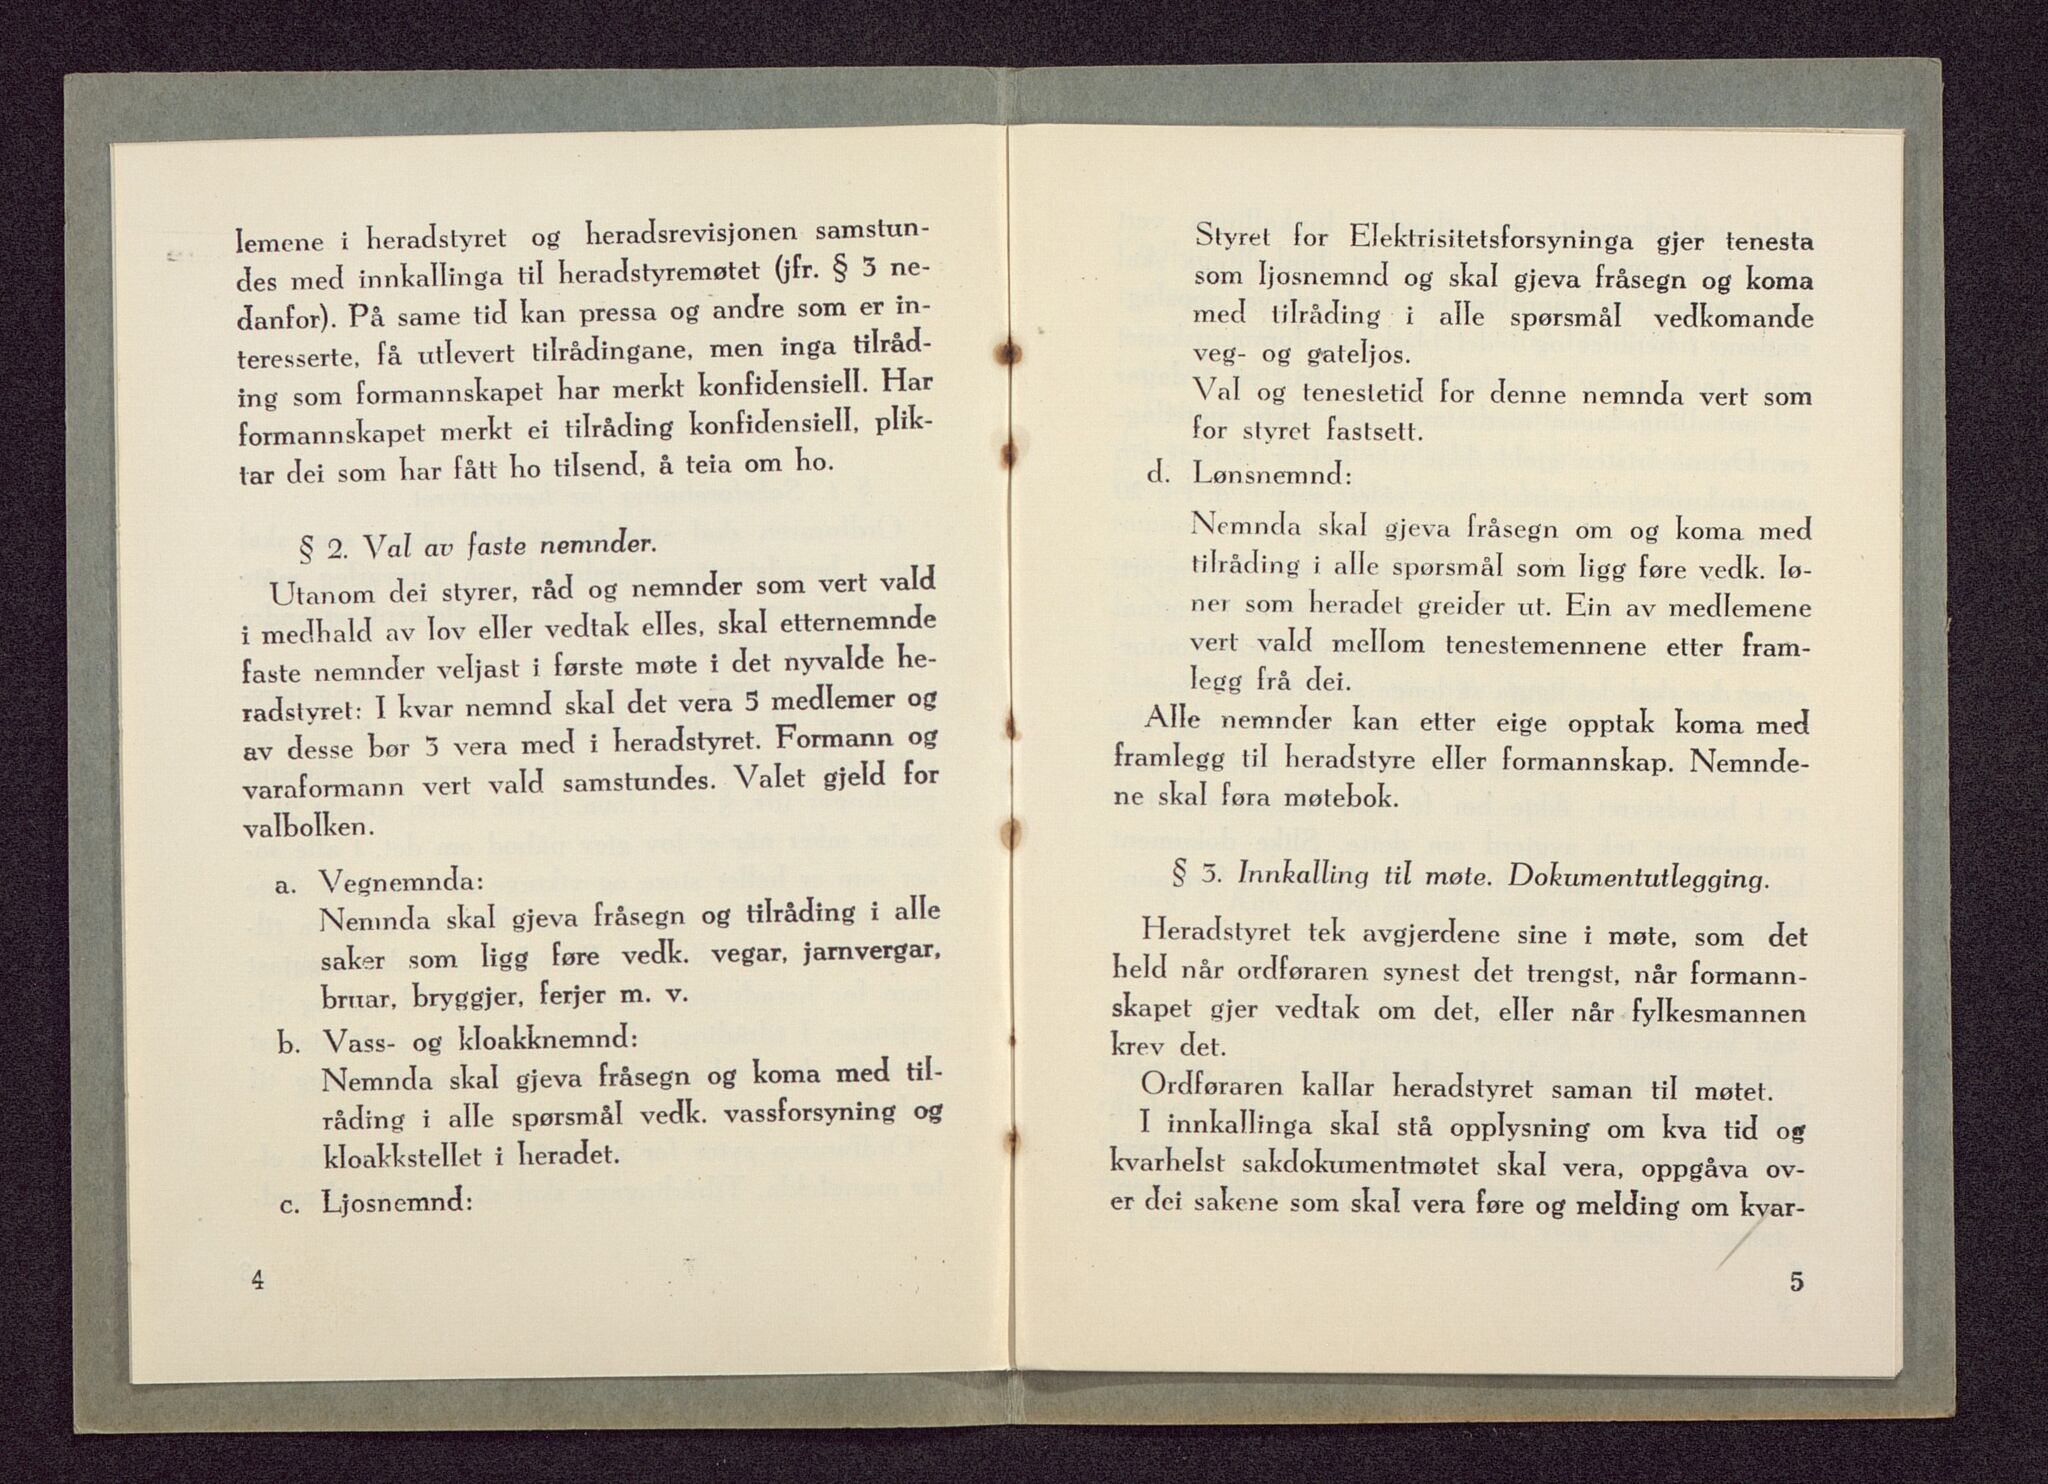 lemene i heradstyret og heradsrevisjonen samstun-
des med innkallinga til heradstyremøtet (jfr. § 3 ne-
danfor). På same tid kan pressa og andre som er in-
teresserte, få utlevert tilrådingane, men inga tilråd-
ing som formannskapet har merkt konfidensiell. Har
formannskapet merkt ei tilråding konfidensiell, plik-
tar dei som har fått ho tilsend, å teia om ho.
§ 2. Val av faste nemnder.
Utanom dei styrer, råd og nemnder som vert vald
i medhald av lov eller vedtak elles, skal etternemnde
faste nemnder veljast i første møte i det nyvalde he-
radstyret: I kvar nemnd skal det vera 5 medlemer og
av desse bør 3 vera med i heradstyret. Formann og
varaformann vert vald samstundes. Valet gjeld for
valbolken.
a. Vegnemnda:
Nemnda skal gjeva fråsegn og tilråding i alle
saker som ligg føre vedk. vegar, jarnvergar,
bruar, bryggjer, ferjer m. v.
b. Vass- og kloakknemnd:
Nemnda skal gjeva fråsegn og koma med til-
råding i alle spørsmål vedk. vassforsyning og
kloakkstellet i heradet.
c. Ljosnemnd:
4
Styret for Elektrisitetsforsyninga gjer tenesta
som ljosnemnd og skal gjeva fråsegn og koma
med tilråding i alle spørsmål vedkomande
veg- og gateljos.
Val og tenestetid for denne nemnda vert som
for styret fastsett.
d. Lønsnemnd:
Nemnda skal gjeva fråsegn om og koma med
tilråding i alle spørsmål som ligg føre vedk. lø-
ner som heradet greider ut. Ein av medlemene
vert vald mellom tenestemennene etter fram-
legg frå dei.
Alle nemnder kan etter eige opptak koma med
framlegg til heradstyre eller formannskap. Nemnde-
ne skal føra møtebok.
§ 3. Innkalling til møte. Dokumentutlegging.
Heradstyret tek avgjerdene sine i møte, som det
held når ordføraren synest det trengst, når formann-
skapet gjer vedtak om det, eller når fylkesmannen
krev det.
Ordføraren kallar heradstyret saman til møtet.
I innkallinga skal stå opplysning om kva tid og
kvarhelst sakdokumentmøtet skal vera, oppgåva ov-
er dei sakene som skal vera føre og melding om kvar-
5